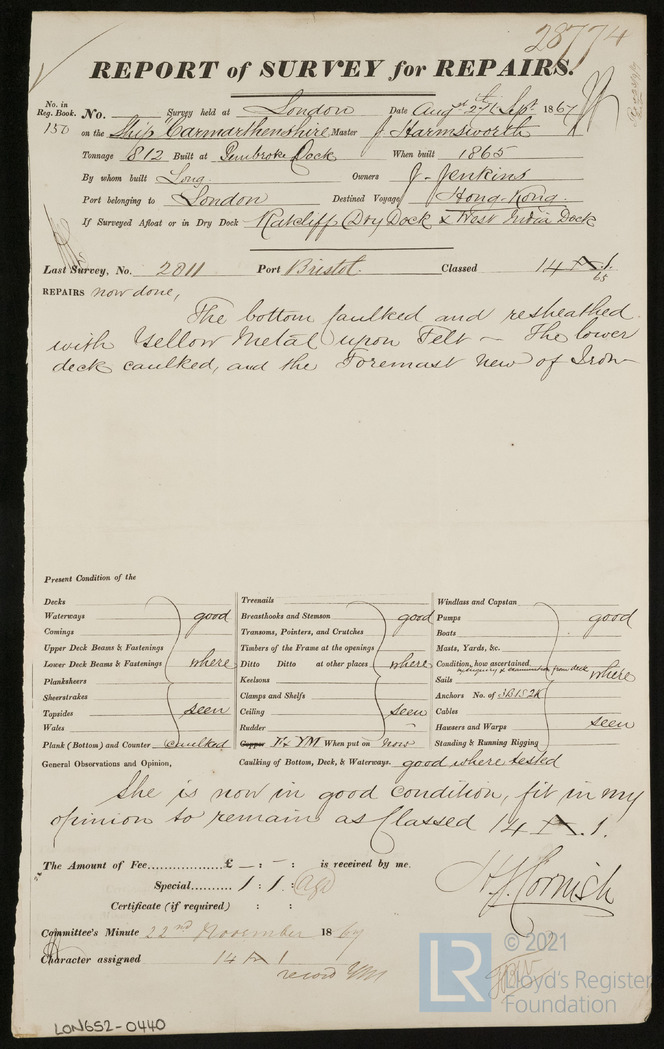 28774
REPORT of SURVEY for REPAIRS.
No. in Reg. Book. No. Survey held at London Date Augst 2nd Sept 1867
150 on the Ship Carmarthenshire Master J Harmsworth
Tonnage 812 Built at Pembroke Dock When built 1865
By whom built Long Owners J. Jenkins
Port belonging to London Destined Voyage Hong-Kong.
If Surveyed Afloat or in Dry Dock Ratcliff Dry Dock & West India Dock
Last Survey, No. 2011 Port Bristol. Classed 14 A.1. 65
REPAIRS now done,
The bottom caulked and resheathed
with Yellow Metal upon Felt – The lower
deck caulked, and the Foremast new of Iron –
Present Condition of the
Decks Treenails Windlass and Capstan
Waterways good Breasthooks and Stemson good Pumps good
Comings Transoms, Pointers, and Crutches Boats
Upper Deck Beams & Fastenings Timbers of the Frame at the openings Masts, Yards, &c.
Lower Deck Beams & Fastenings where Ditto Ditto at other places where Condition, how ascertained by inquiry & examination from deck where
Planksheers Keelsons Sails
Sheerstrakes Clamps and Shelfs Anchors No. of 3B 1S 2K
Topsides seen Ceiling seen Cables
Wales Rudder Hawsers and Warps seen
Plank (Bottom) and Counter caulked Copper F & YM When put on now Standing & Running Rigging
General Observations and Opinion, Caulking of Bottom, Deck, & Waterways. good where tested
She is now in good condition, fit in my
opinion to remain as Classed 14 A.1.
The Amount of Fee.................£ – : – : is received by me.
Special.......... 1 : 1 :
Certificate (if required) : :
H J Cornish
Committee's Minute 22nd November 1867
Character assigned 14 A 1
record YM
LR © 2021
Lloyd's Register
Foundation
LON652-0440